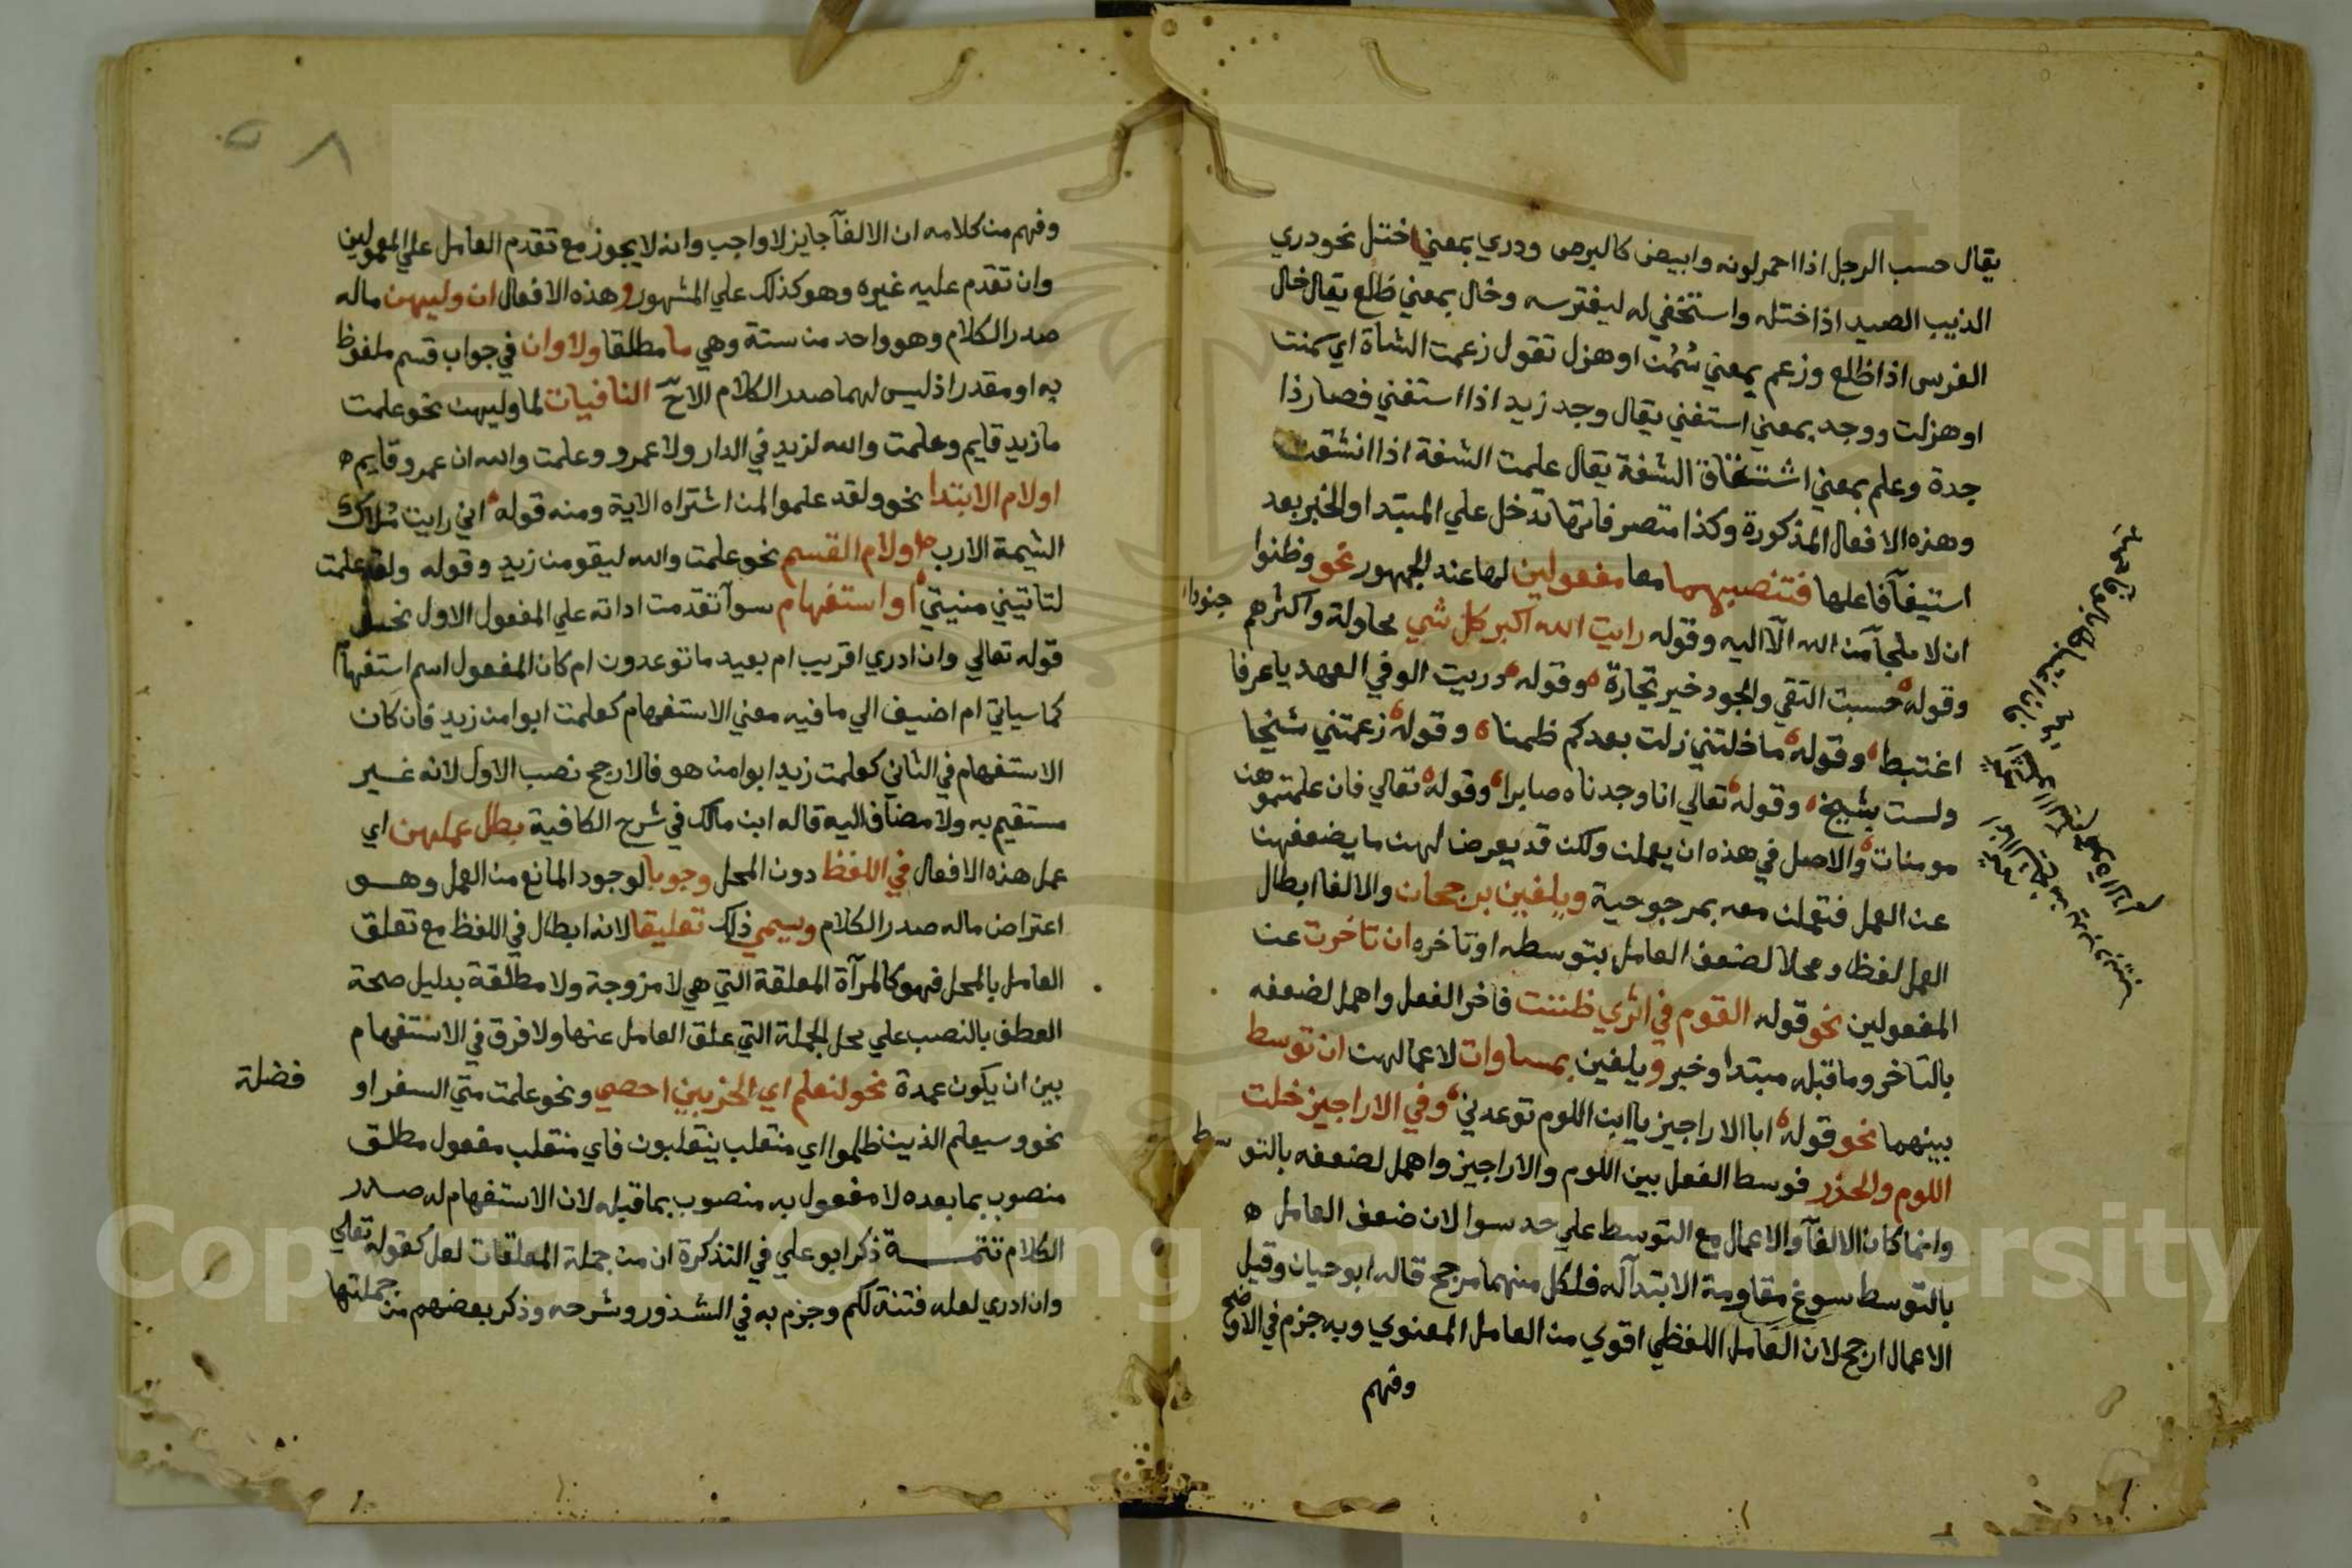 يقال حسب الرجل اذا احمر لونه وابيض كالبرص ودري بمعني اختتل نحو دري
الذيب الصيد اذا اختتله واستخفي له ليفترسه وخال بمعني ظلع يقال خال
الفرس اذا ظلع وزعم بمعني سمُن او هزل تقول زعمت الشاة اي سمنت
او هزلت ووجد بمعني استغني يقال وجد زيد اذا استغني فصار ذا
جدة وعلم بمعني اشتقاق الشفة يقال علمت الشفة اذا انشقت
وهذه الافعال المذكورة وكذا متصرفاتها تدخل علي المبتدا والخبر بعد
استيفآ فاعلها فتنصبهما معا مفعولين لها عند الجمهور نحو وظنوا
ان لا ملجأ من الله الا اليه وقوله رايت الله اكبر كل شي محاولة واكثرهم جنودا
وقوله حسبت التقي والجود خير تجارة وقوله دريت الوفي العهد يا عرفا
اغتبط وقوله ما خلتني زلت بعدكم ظمنا وقوله زعمتني شيخا
ولست بشيخ وقوله تعالي انا وجدناه صابرا وقوله تعالي فان علمتموهن
مومنات والاصل في هذه ان يعملن ولكن قد يعرض لهن ما يضعفهن
عن العمل فتعملن معه بمرجوحية ويلغين برجحان والالغا ابطال
العمل لفظا ومحلا لضعف العامل بتوسطه او تاخره ان تاخرت عن
المفعولين نحو قوله القوم في اثري ظننت فاخر الفعل واهمل لضعفه
بالتاخر وما قبله مبتدا وخبر ويلغين بمساوات لاعمالهن ان توسط
بينهما نحو قوله ابا الاراجيز يا ابن اللوم توعدني وفي الاراجيز خلت
اللوم والخزر فوسط الفعل بين اللوم والاراجيز واهمل لضعفه بالتوسط
وانما كان الالغآ والاعمال مع التوسط علي حد سوا لان ضعف العامل ه
بالتوسط سوغ مقاومة الابتدآ له فلكل منهما مرجح قاله ابو حيان وقيل
الاعمال ارجح لان العامل اللفظي اقوي من العامل المعنوي وبه جزم في الاوضح
وفهم
٥٨
وفهم من كلامه ان الالغآ جايز لا واجب وانه لا يجوز مع تقدم العامل علي المعمولين
وان تقدم عليه غيره وهو كذلك علي المشهور وهذه الافعال ان وليهن ماله
صدر الكلام وهو واحد من ستة وهي ما مطلقا ولا وان في جواب قسم ملفوظ
به او مقدر اذ ليس لهما صدر الكلام الا ح النافيات لما وليهن نحو علمت
ما زيد قايم وعلمت والله لزيد في الدار ولا عمرو وعلمت والله ان عمرو قايم ه
او لام الابتدا نحو ولقد علموا لمن اشتراه الاية ومنه قوله اني رايت ملاك
الشيمة الارب او لام القسم نحو علمت والله ليقومن زيد وقوله ولقد علمت
لتاتيني منيتي او استفهام سوآ تقدمت اداته علي المفعول الاول نحو
قوله تعالي وان ادري اقريب ام بعيد ما توعدون ام كان المفعول اسم استفهام
كما سياتي ام اضيف الي ما فيه معني الاستفهام كعلمت ابوا من زيد فان كان
الاستفهام في الثاني كعلمت زيدا بوا من هو فالارجح نصب الاول لانه غير
مستقيم به ولا مضاف اليه قاله ابن مالك في شرح الكافية بطل عملهن اي
عمل هذه الافعال في اللفظ دون المحل وجوبا لوجود المانع من العمل وهو
اعتراض ماله صدر الكلام ويسمي ذلك تعليقا لانه ابطال في اللفظ مع تعلق
العامل بالمحل فهو كالمرآة المعلقة التي هي لا مزوجة ولا مطلقة بدليل صحة
العطف بالنصب علي محل الجملة التي علق العامل عنها ولا فرق في الاستفهام
بين ان يكون عمدة نحو لنعلم اي الحزبين احصي ونحو علمت متي السفر او فضلة
نحو وسيعلم الذين ظلموا اي منقلب ينقلبون فاي منقلب مفعول مطلق
منصوب بما بعده لا مفعول به منصوب بما قبله لان الاستفهام له صدر
الكلام تتمة ذكر ابو علي في التذكرة ان من جملة المعلقات لعل كقوله تعالي
وان ادري لعله فتنة لكم وجزم به في الشذور وشرحه وذكر بعضهم من جملتها
Copyright © King Saud University